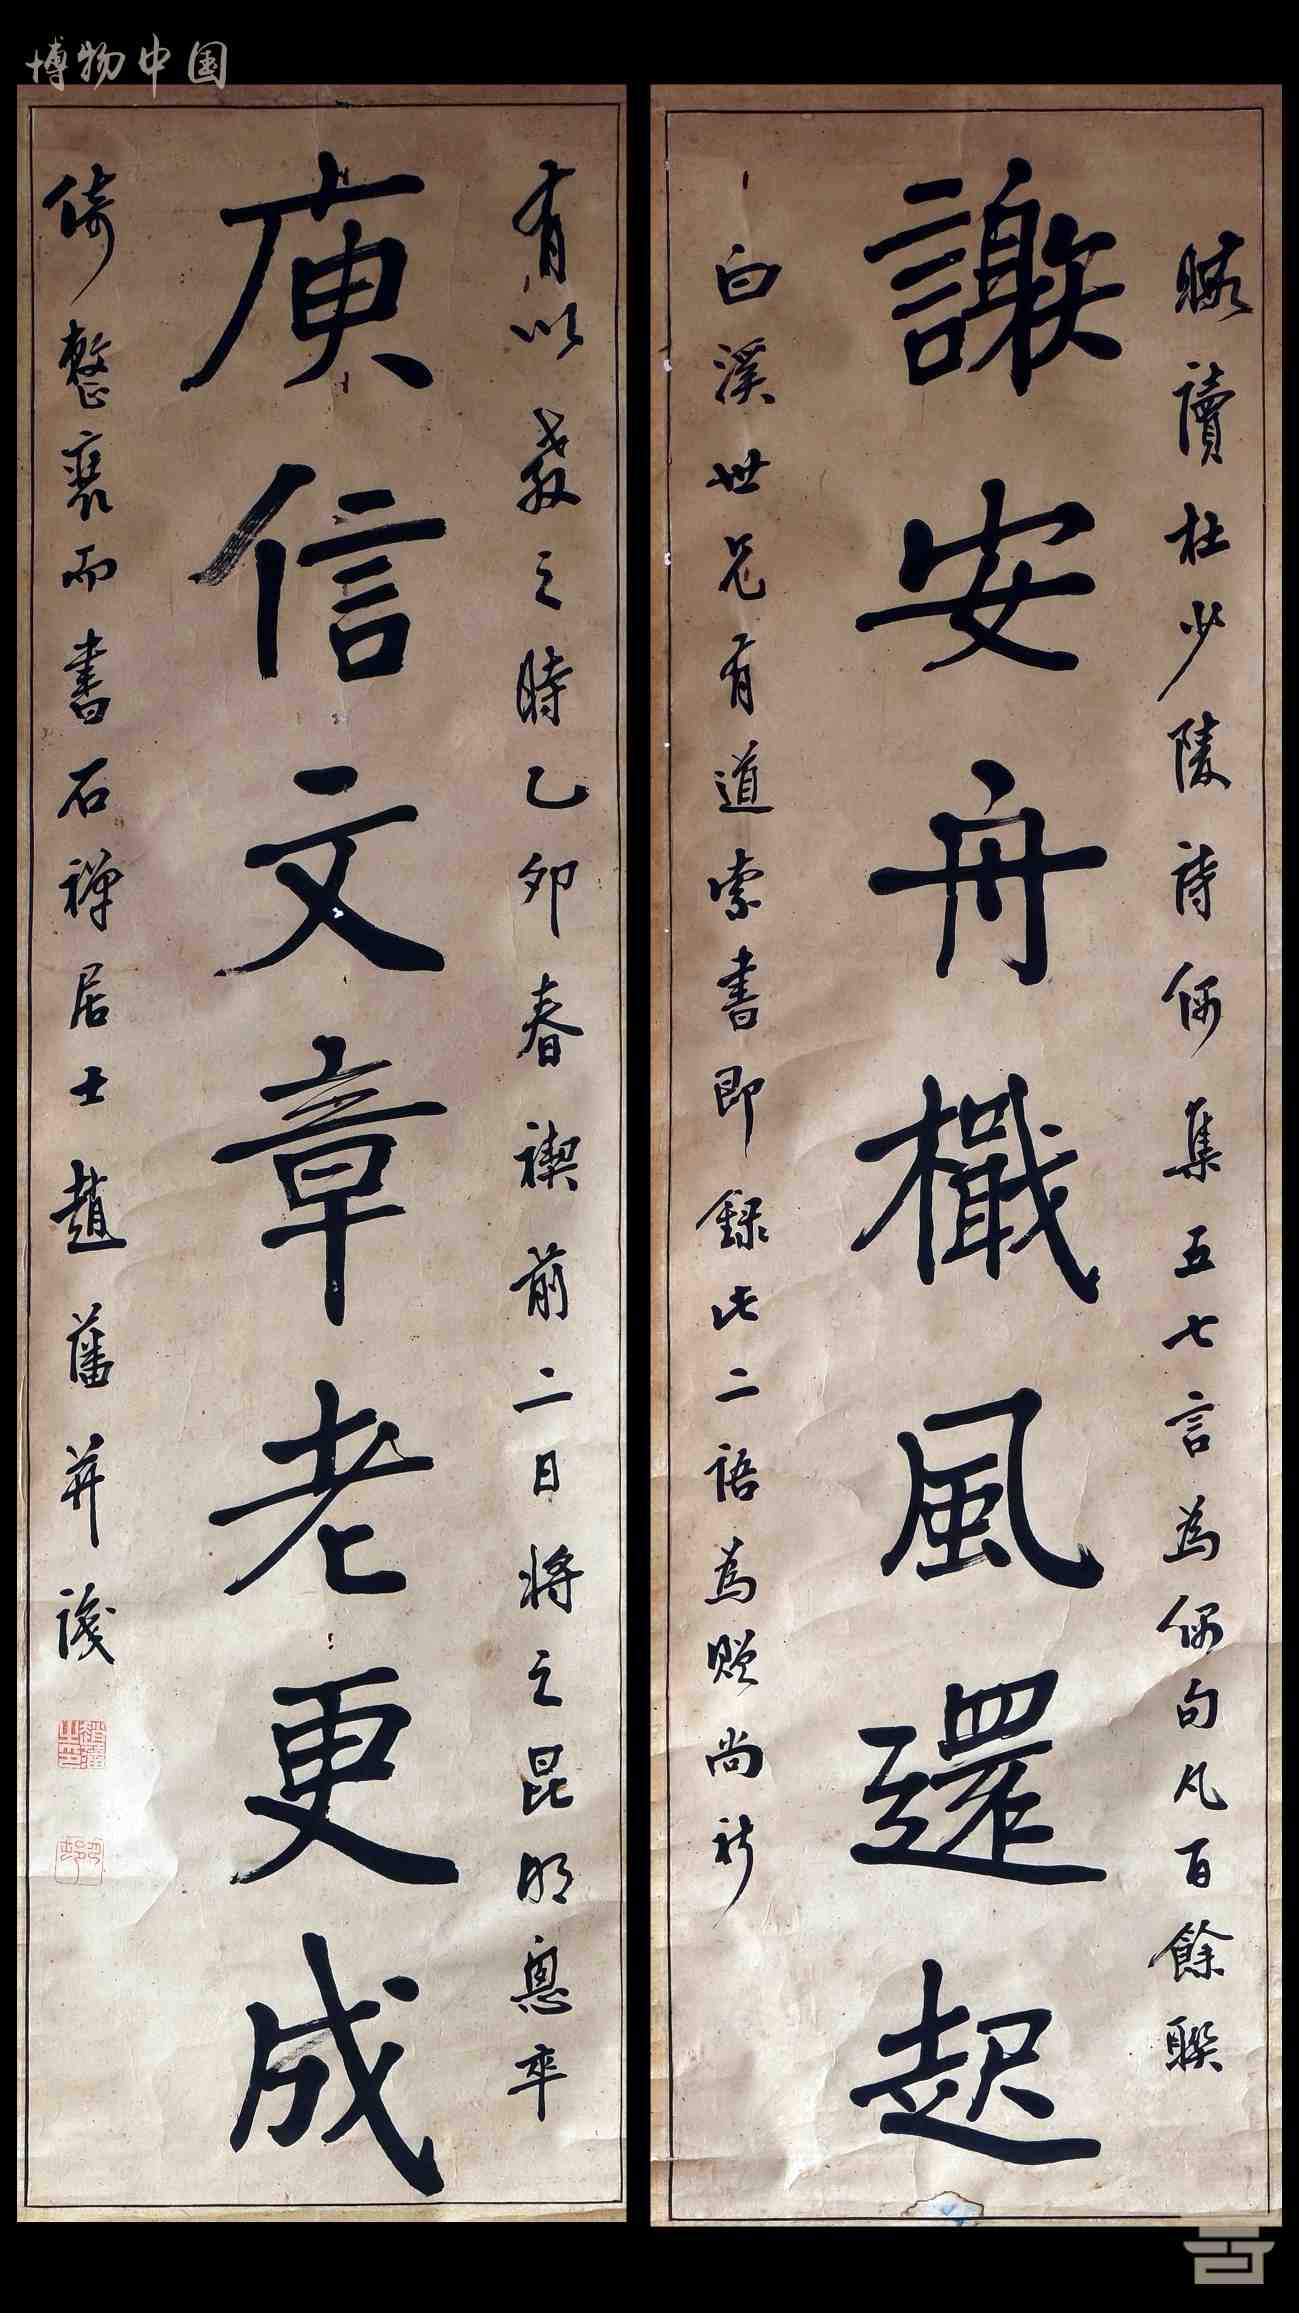 博物中国
暇讀杜少陵詩偶集五七言為偶句凡百餘聯
謝安舟檝風還起
白溪世兄有道索書即録此二語為贈尚祈
有以教之時乙卯春禊前二日將之昆明恩卒
庾信文章老更成
倚整裝而書石禅居士趙藩并識